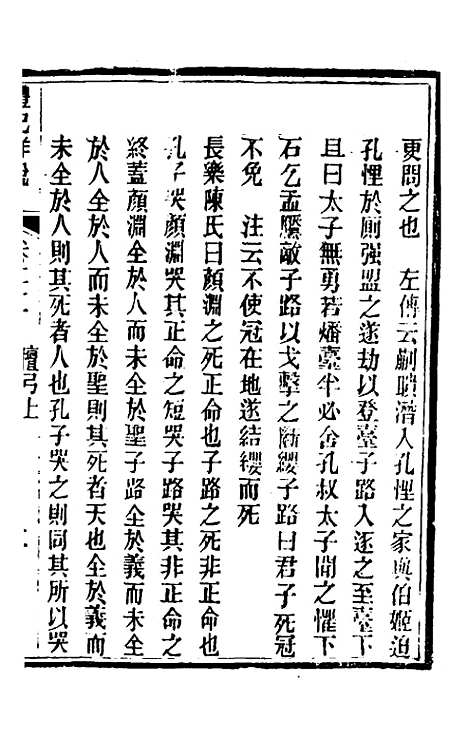 更問之也　左傳云蒯聵潛入孔悝之家與伯姬迫
孔悝於厠强盟之遂劫以登臺子路入逐之至臺下
且曰太子無勇若燔臺半必舍孔叔太子聞之懼下
石乞盂黶敵子路以戈擊之斷纓子路曰君子死冠
不免　注云不使冠在地遂結纓而死
長樂陳氏曰顏淵之死正命也子路之死非正命也
孔子哭顏淵哭其正命之短哭子路哭其非正命之
終蓋顏淵全於人而未全於聖子路全於義而未全
於人全於人而未全於聖則其死者天也全於義而
未全於人則其死者人也孔子哭之則同其所以哭
禮記詳說
檀弓上